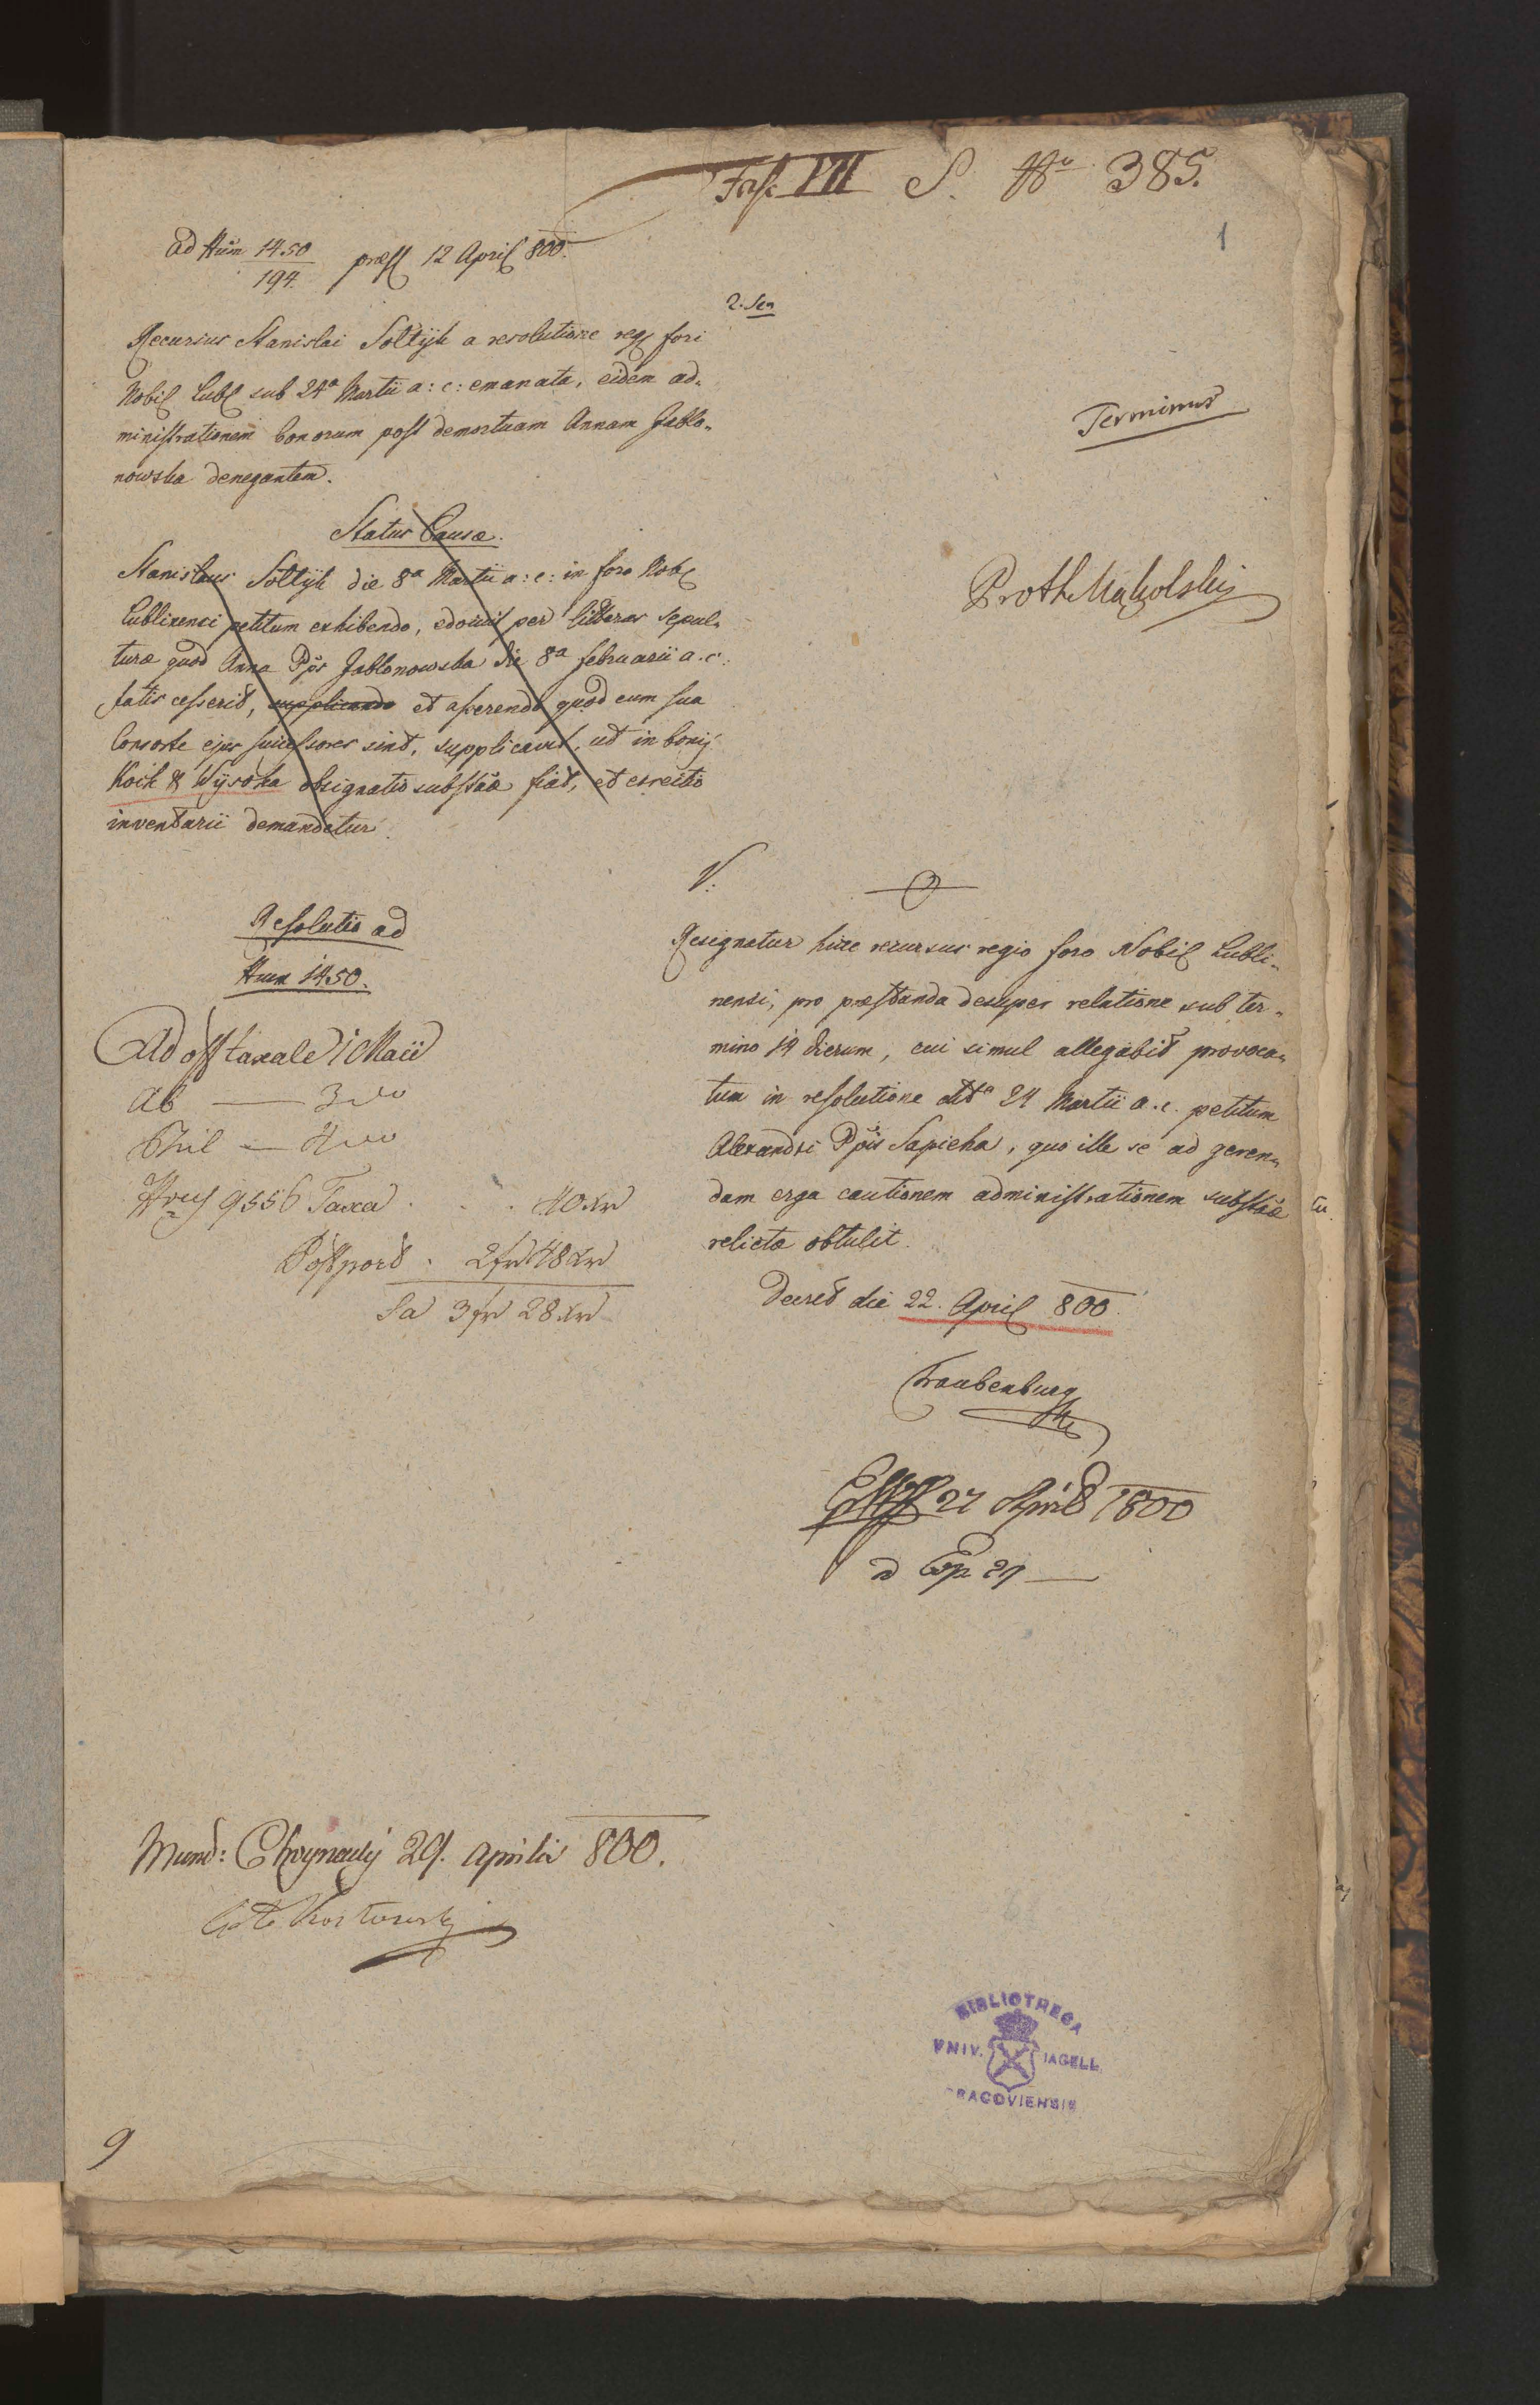 Fasc VII S. Nro 385.
1
ad Num 1450/194. præs 12 April 800.
2. Sen
Recursus Stanislai Soltÿk a resolutione reg fori
Nobil Lubl sub 24a Martii a: c: emanata, eidem ad„
ministrationem bonorum post demortuam Annam Jablo„
nowska denegantem.
Terminus
Status Causæ.
Stanislaus Soltÿk die 8a Martii a: c: in foro Nobl
Lublinensi petitum exhibendo, edocuit per litteras sepul„
turæ quod Anna Ppis Jablonowska die 8a februarii a. c.
fatis cesserit, supplicando et asserendo quod cum sua
Consorte ejus successores sint, supplicavit, ut in bonis
Kock & Wÿsoka obsignatio substæ fiat, et erectio
inventarii demandetur.
Proth Makolskÿ
Resolutio ad
Num 1450.
Ad off taxale 1 Maii
Ab — 3
— 4
9556 Taxa . . . 40 xr
Postport . 2 fr 48 xr
Sa 3 fr 28 xr
V:
Resignatur hicce recursus regio foro Nobil Lubli„
nensi, pro præstanda desuper relatione sub ter„
mino 14 dierum, cui simul allegabit provoca„
tum in resolutione dtta 24 Martii a. c. petitum
Alexandri Ppis Sapieha, quo ille se ad geren„
dam erga cautionem administrationem substæ
relictæ obtulit.
Decret die 22. April 800.
Traubenburg
27 April 1800
Exp 29
Mund: Choynacky 29. Aprilis 800.
9
BIBLIOTHECA
VNIV. IAGELL.
CRACOVIENSIS